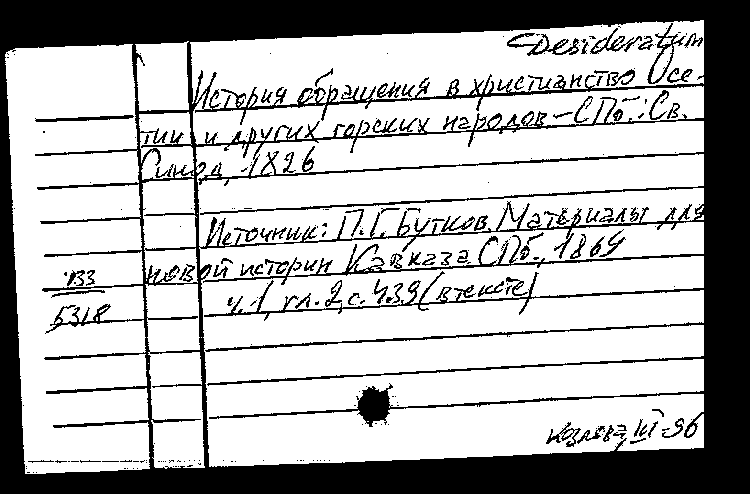 Desideratum
История обращения в христианство Осе-
тии и других горских народов – СПб.: Св.
Синод, 1826
Источник: П.Г. Бутков. Материалы для
новой истории Кавказа. СПб., 1869
ч.1, гл.2, с. 439 (в тексте)
133
5318
Козлова, III-96